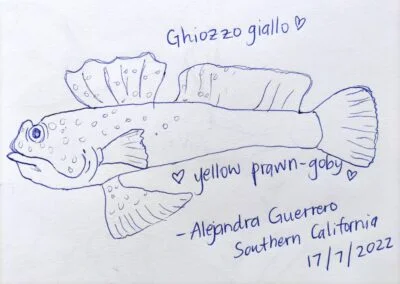 Ghiozzo giallo ♡
♡ yellow prawn-goby ♡
- Alejandra Guerrero
Southern California
17/7/2022